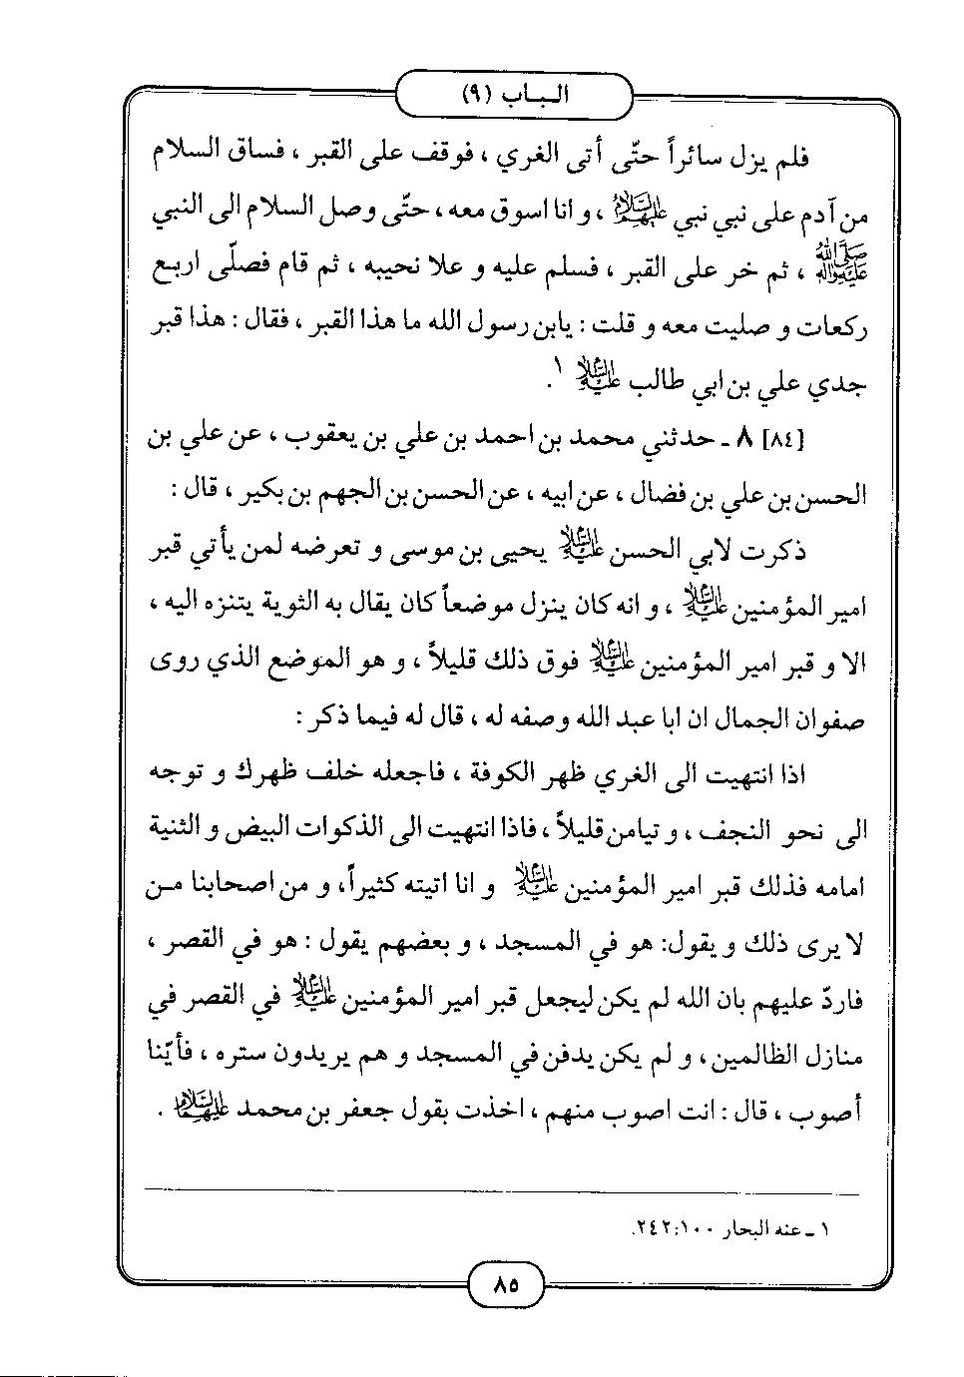 الباب (٩)
فلم يزل سائراً حتّى أتى الغري ، فوقف على القبر ، فساق السلام
من آدم على نبي نبي عليهم السلام ، و انا اسوق معه ، حتّى وصل السلام الى النبي
صلى الله عليه وآله ، ثم خر على القبر ، فسلم عليه و علا نحيبه ، ثم قام فصلّى اربع
ركعات و صليت معه و قلت : يابن رسول الله ما هذا القبر ، فقال : هذا قبر
جدي علي بن ابي طالب عليه السلام ١.
[٨٤] ٨ ـ حدثني محمد بن احمد بن علي بن يعقوب ، عن علي بن
الحسن بن علي بن فضال ، عن ابيه ، عن الحسن بن الجهم بن بكير ، قال :
ذكرت لابي الحسن عليه السلام يحيى بن موسى و تعرضه لمن يأتي قبر
امير المؤمنين عليه السلام ، و انه كان ينزل موضعاً كان يقال به الثوية يتنزه اليه ،
الا و قبر امير المؤمنين عليه السلام فوق ذلك قليلاً ، و هو الموضع الذي روى
صفوان الجمال ان ابا عبد الله وصفه له ، قال له فيما ذكر :
اذا انتهيت الى الغري ظهر الكوفة ، فاجعله خلف ظهرك و توجه
الى نحو النجف ، و تيامن قليلاً ، فاذا انتهيت الى الذكوات البيض و الثنية
امامه فذلك قبر امير المؤمنين عليه السلام و انا اتيته كثيراً، و من اصحابنا من
لا يرى ذلك و يقول: هو في المسجد ، و بعضهم يقول : هو في القصر ،
فاردّ عليهم بان الله لم يكن ليجعل قبر امير المؤمنين عليه السلام في القصر في
منازل الظالمين، و لم يكن يدفن في المسجد و هم يريدون ستره ، فأيّنا
أصوب ، قال : انت اصوب منهم ، اخذت بقول جعفر بن محمد عليهم السلام .
١ ـ عنه البحار ١٠٠:٢٤٢.
٨٥